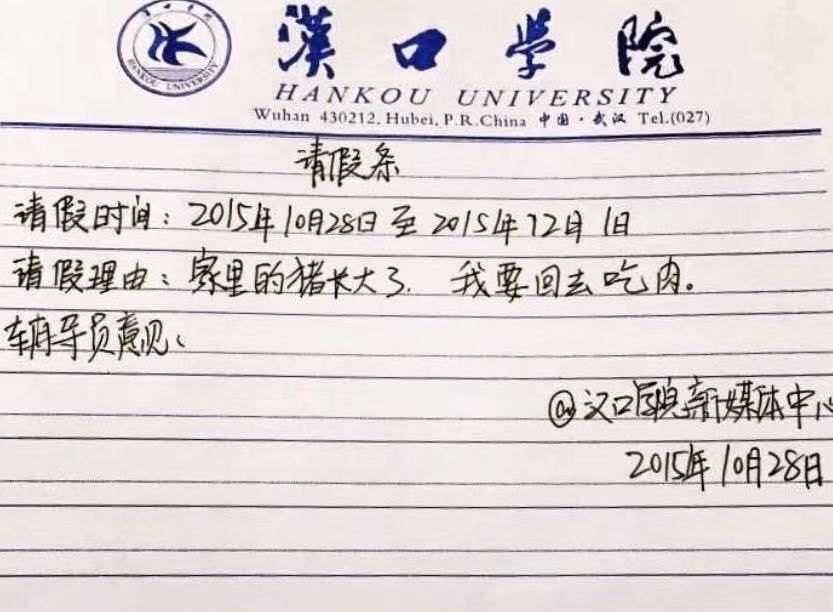 漢口学院
HANKOU UNIVERSITY
Wuhan 430212, Hubei, P.R.China 中国·武汉 Tel.(027)
HANKOU UNIVERSITY
请假条
请假时间：2015年10月28日至2015年12月1日
请假理由：家里的猪长大了．我要回去吃肉。
辅导员意见：
@汉口学院新媒体中心
2015年10月28日